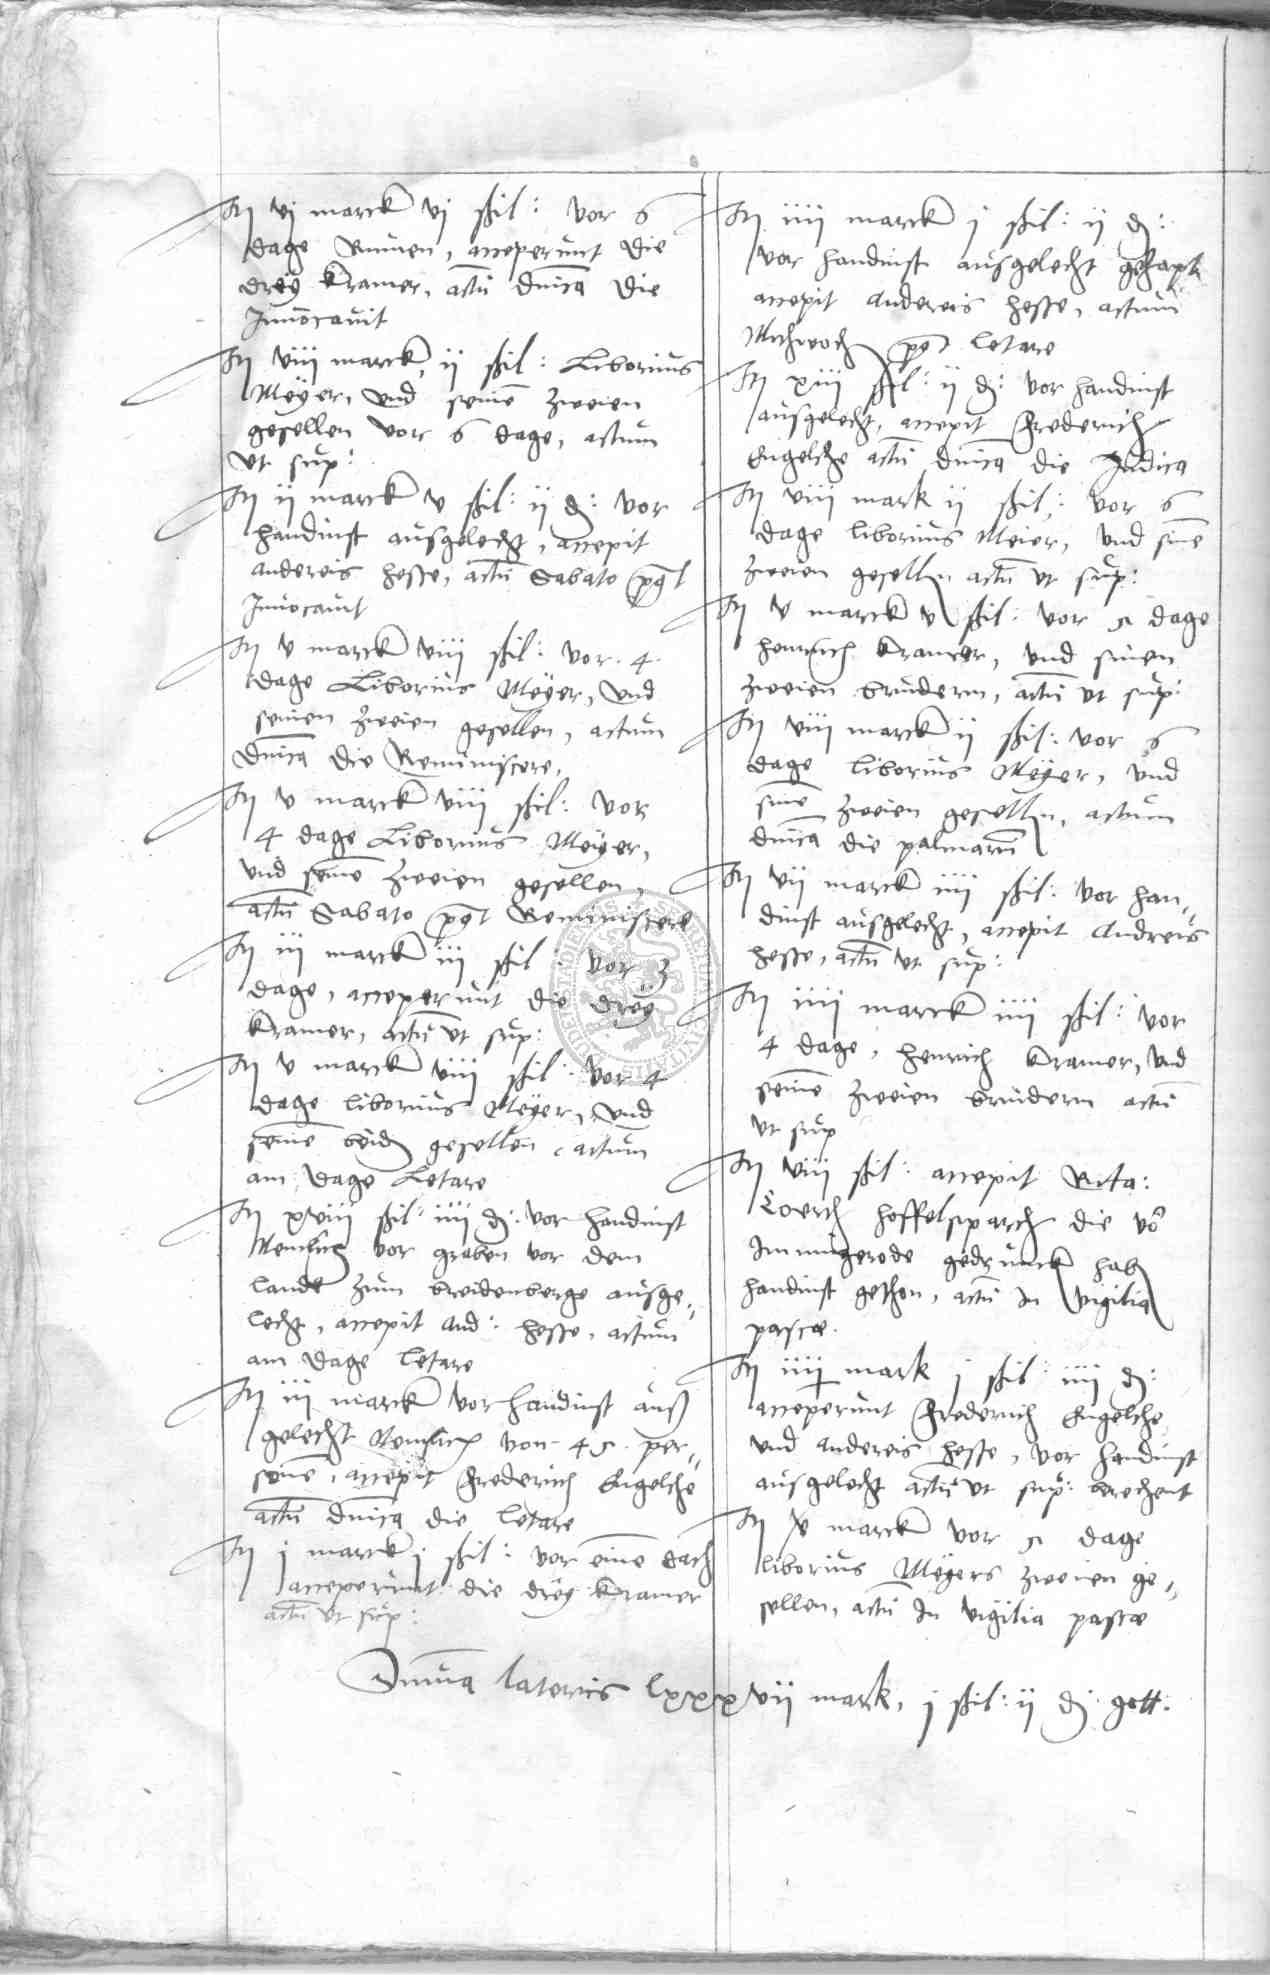 It vj marck vj schil: vor 6
dage Rumen, acceperunt die
drey Kramer, actu dnica die
Invocavit
It viii marck, ij schil: Liborius
Meyer, und seine zweien
gesellen vor 6 dage, actum
ut sup:
It ii marck v schil: ij d: vor
handinst ausgelecht, accepit
Andereis Hesse, actu Sabato post
Invocavit
It v marck viii schil: vor .4.
dage Liborius Meyer, und
seinen zweien gesellen, actum
dnica die Reminiscere,
It v marck viii schil: vor
4 dage Liborius Meyer,
und seine zweien gesellen,
actu Sabato post Reminiscere
It iii marck iii schil: vor 3
dage, acceperunt die drey
Kramer, actu ut sup:
It v marck viii schil: vor 4
dage liborius Meyer, und
seine beid gesellen, actum
am dage Letare
It xviii schil: iiii d: vor handinst
Nemlich vor graben vor dem
lande zum breidenberge ausge-
lecht, accepit And: Hesse, actum
am dage letare
It iii marck vor handinst auß
gelecht Nemlich von 45 per-
sone, accepit Frederich Engelche
actu dnica die letare
It j marck j schil: vor eine dach
acceperunt die drey Kramer
actu ut sup:
It iiii marck j schil: ij d:
vor handinst ausgelecht
accepit Andereis Hesse, actum
Mithwoch post letare
It xiii schil: ij d: vor handinst
ausgelecht, accepit Frederich
Engelche actu dnica die Judica
It viii mark ij schil: vor 6
dage liborius Meier, und sine
zweien gesellen actu ut sup:
It v marck v schil: vor 5 dage
Henrich Kramer, und sinen
zweien brudern, actu ut sup:
It viii marck ij schil: vor 6
dage liborius Meyer, und
sine zweien gesellen, actum
dnica die palmaru
It vii marck iiii schil: vor han-
dinst ausgelecht, accepit Andreis
Hesse, actu ut sup:
It iiii marck iiii schil: vor
4 dage, Henrich Kramer, und
seine zweien brudern actu
ut sup
It viii schil: accepit
die vo
Immingerode hab
handinst gethon, actu in vigilia
pascae.
It iiii mark j schil: iiii d:
acceperunt Frederich Engelche
und Andereis Hesse, vor handinst
ausgelecht actu ut sup: berechent
It v marck vor 5 dage
liborius Meyers zweien ge-
sellen, actu in vigilia pascae
Summa lateris lxxxvii mark, j schil: ij d: gott: